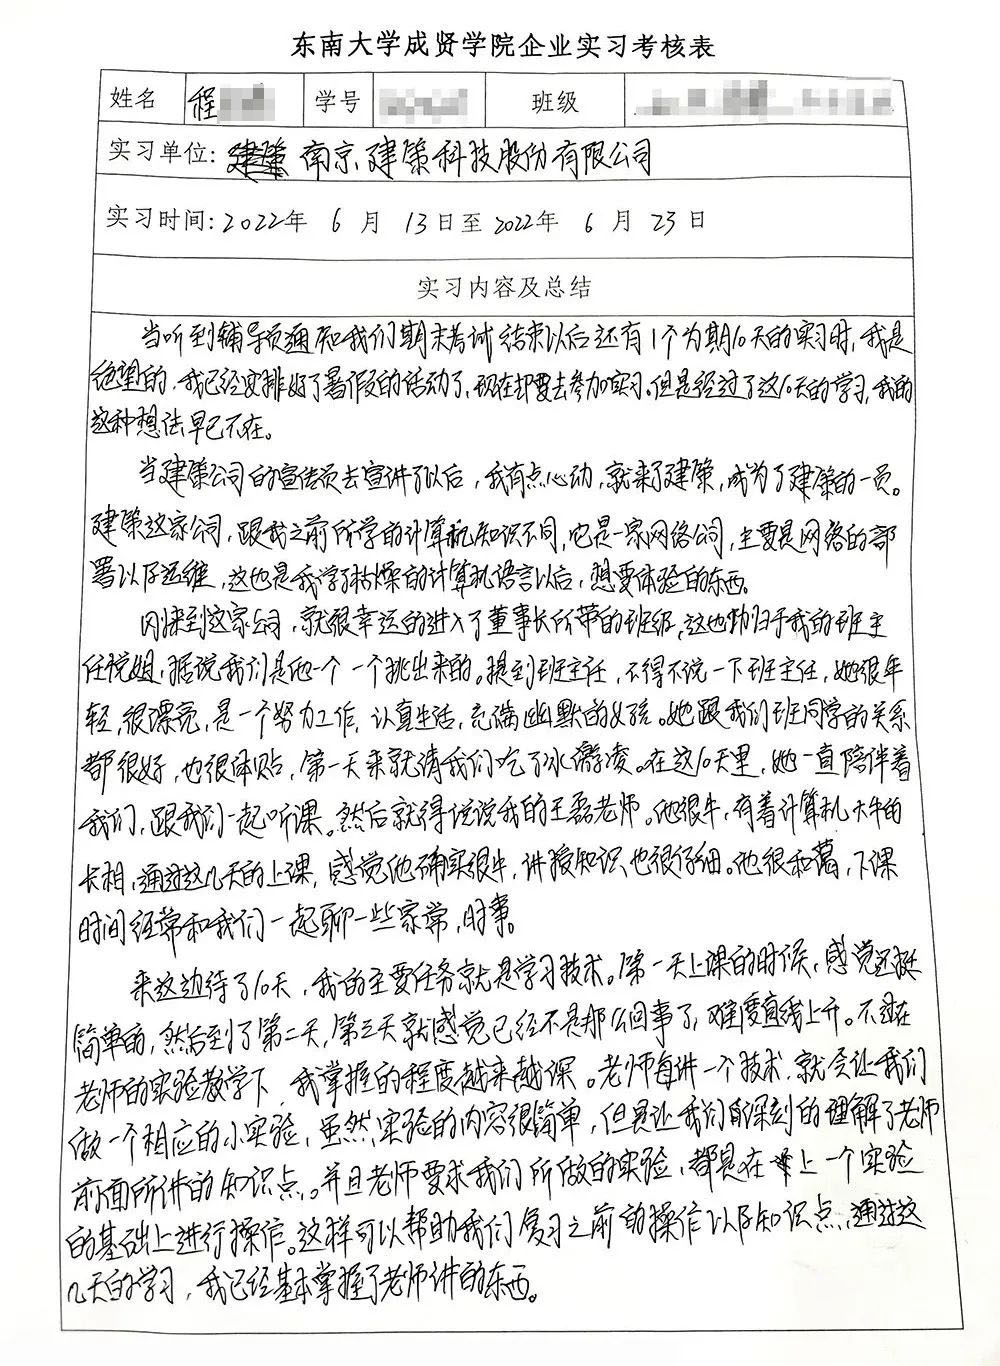 东南大学成贤学院企业实习考核表
姓名 程 学号 班级
实习单位: 南京建策科技股份有限公司
实习时间: 2022年 6 月 13 日至 2022年 6 月 23 日
实习内容及总结
当听到辅导员通知我们期末考试结束以后还有1个为期10天的实习时,我是
绝望的,我已经安排好了暑假的活动了,现在却要去参加实习。但是经过了这10天的学习,我的
这种想法早已不在。
当建策公司的宣传员去宣讲了以后,我有点心动,就来了建策,成为了建策的一员。
建策这家公司,跟我之前所学的计算机知识不同,它是一家网络公司,主要是网络的部
署以及运维,这也是我学了枯燥的计算机语言以后,想要体验的东西。
刚来到这家公司,就很幸运的进入了董事长所带的班级,这也归于我的班主
任悦姐,据说我们是他一个一个挑出来的。提到班主任,不得不说一下班主任,她很年
轻,很漂亮,是一个努力工作,认真生活,充满幽默的女孩。她跟我们班同学的关系
都很好,也很体贴,第一天来就请我们吃了冰激凌。在这10天里,她一直陪伴着
我们,跟我们一起听课。然后就得说说我的王磊老师。他很牛,有着计算机大牛的
长相,通过这几天的上课,感觉他确实很牛,讲授知识也很仔细。他很和蔼,下课
时间经常和我们一起聊一些家常,时事。
来这边待了10天,我的主要任务就是学习技术。第一天上课的时候,感觉还挺
简单的,然后到了第二天,第三天就感觉已经不是那么回事了,难度直线上升。不过在
老师的实验教学下,我掌握的程度越来越深。老师每讲一个技术,就会让我们
做一个相应的小实验,虽然实验的内容很简单,但是让我们深刻的理解了老师
前面所讲的知识点。并且老师要求我们所做的实验,都是在上一个实验
的基础上进行操作。这样可以帮助我们复习之前的操作以及知识点,通过这
几天的学习,我已经基本掌握了老师讲的东西。